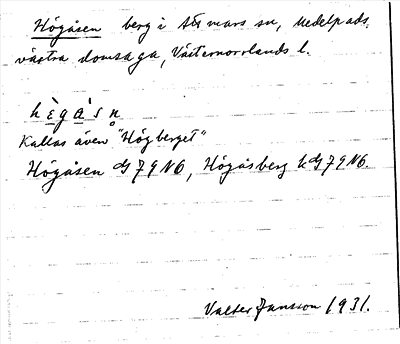 Högåsen berg i Attmars sn, Medelpads
västra domsaga, Västernorrlands l.
hὲgàsn̥
Kallas även "Högberget"
Högåsen GJ79NO, Högåsberg kGJ79NO.
Valter Jansson 1931.